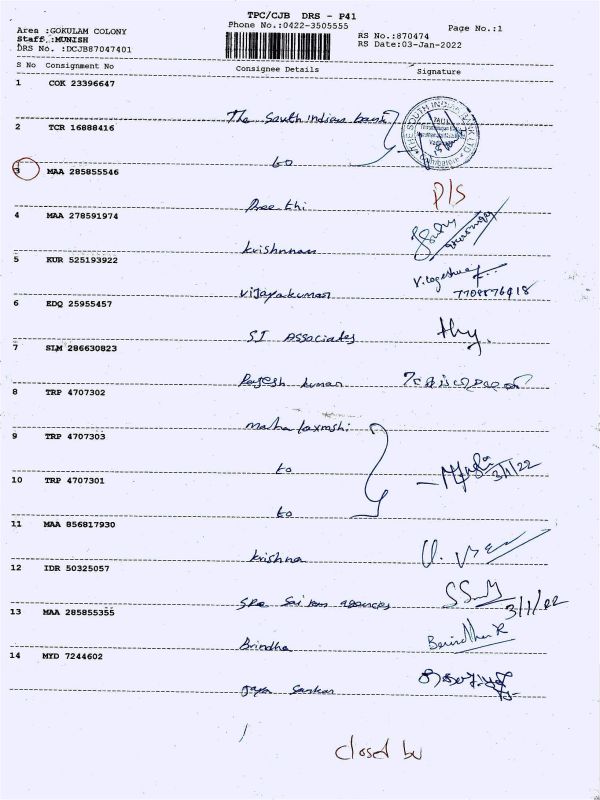 TPC/CJB DRS - P41
Phone No.:0422-3505555
Page No.:1
Area :GOKULAM COLONY
Staff.:MUNISH
DRS No. :DCJB87047401
RS No.:870474
RS Date:03-Jan-2022
S No Consignment No Consignee Details Signature
1 COK 23396647
The South Indian bank
THE SOUTH INDIAN BANK LTD.
Coimbatore
2 TCR 16888416
to
3 MAA 285855546
Preethi P/S
4 MAA 278591974
krishnnan
5 KUR 525193922
vijayakumar V. Logeshwar
7708876918
6 EDQ 25955457
SI Associates
7 SLM 286630823
Rajesh kumar
8 TRP 4707302
maha laxmshi
9 TRP 4707303
to 3/1/22
10 TRP 4707301
to
11 MAA 856817930
krishna
12 IDR 50325057
Sree Sai ram agencies 3/1/22
13 MAA 285855355
Brindha
14 MYD 7244602
Jaya Sankar
closed by